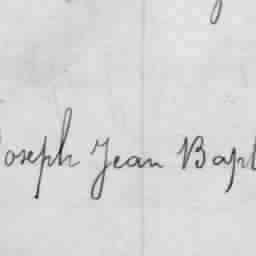 Joseph Jean Bapt